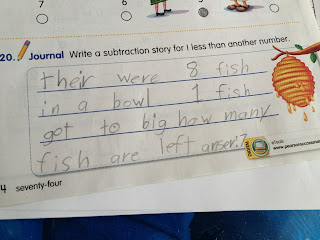 7
6
8
9
20. Journal Write a subtraction story for 1 less than another number.
their were 8 fish
in a bowl 1 fish
got to big how many
fish are left anser:7
eTools
4 seventy-four